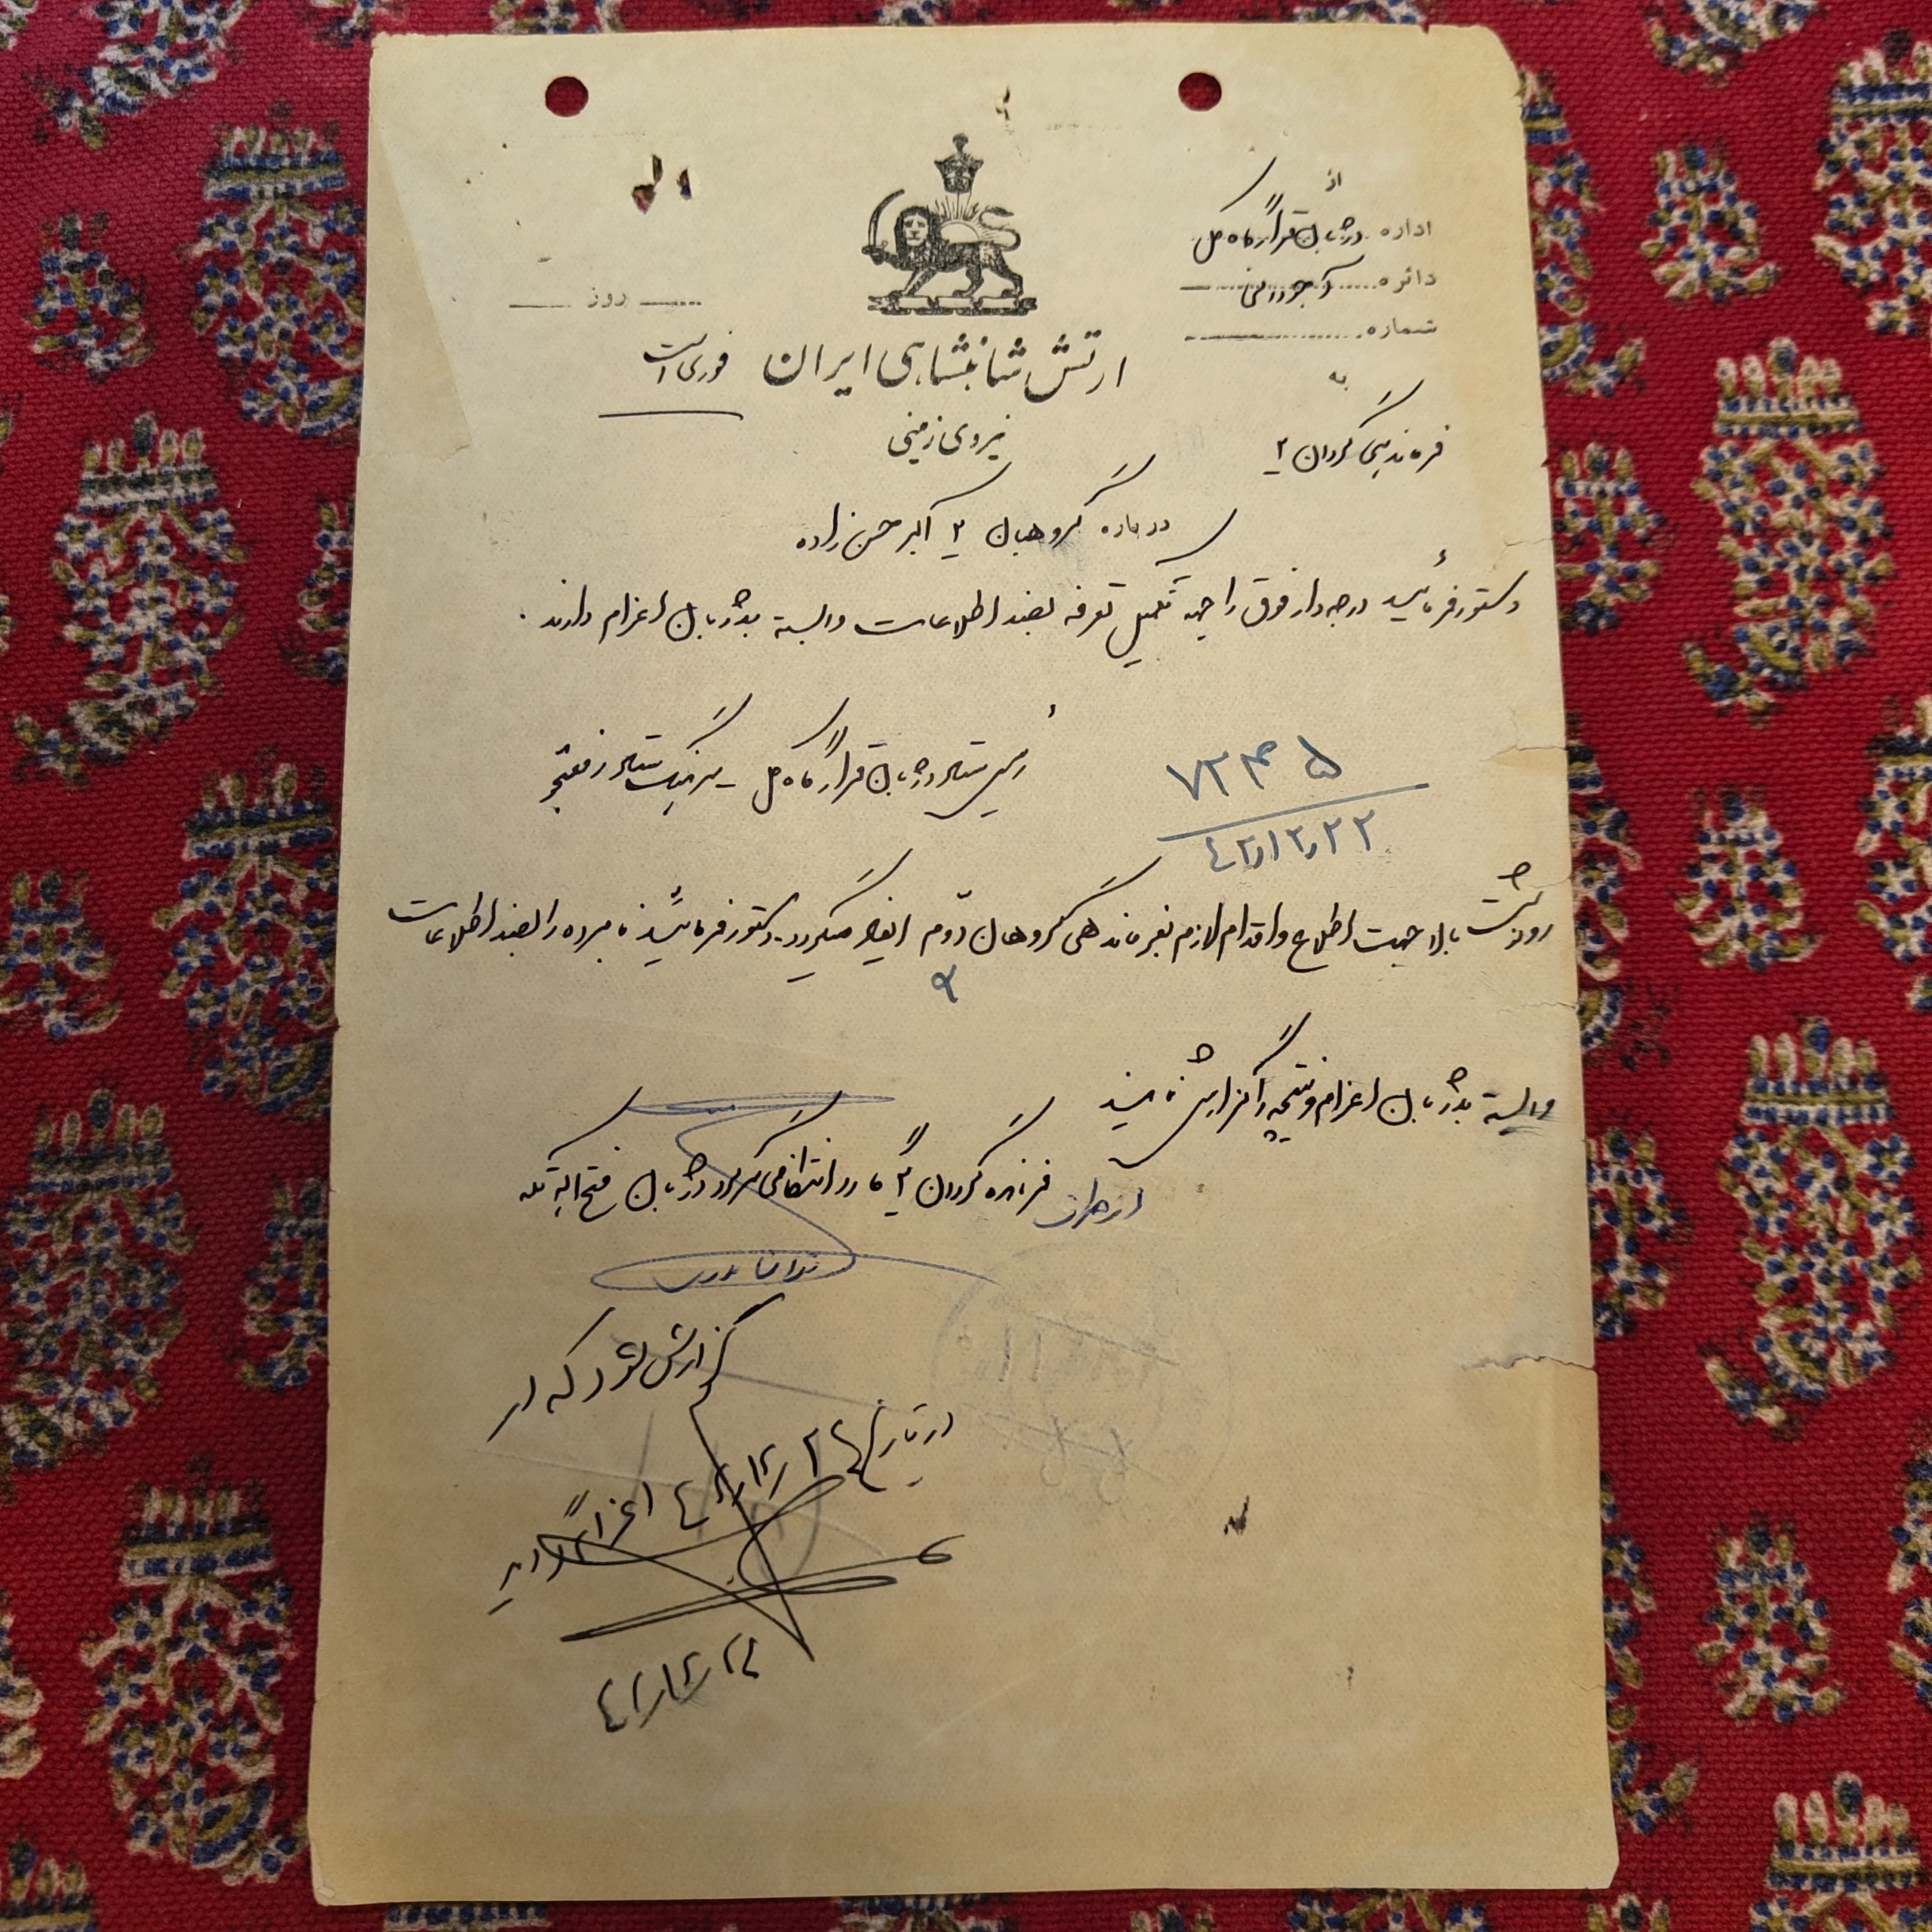 از
اداره دژبان قرارگاه کل
دائره آجودانی
شماره
روز
ارتش شاهنشاهی ایران
فوری است
نیروی زمینی
به
فرماندهی گردان ۲
درباره گروهبان ۲ اکبر حسن زاده
دستور فرمائید درجه دار فوق را جهت تکمیل تعرفه بضد اطلاعات وابسته بدژبان اعزام دارند.
رئیس ستاد دژبان قرارگاه کل - سرهنگ ستاد
۷۲۴۵
۴۲/۱۲/۲۲
رونوشت بالا جهت اطلاع و اقدام لازم بفرماندهی گروهان دوم ایفاد میگردد دستور فرمائید نامبرده را بضد اطلاعات
وابسته بدژبان اعزام و نتیجه را گزارش نمایند
از طرف فرمانده گردان ۲ گارد انتظامی سرگرد دژبان فتح اله
گزارش شود که در
در تاریخ ۴۲/۱۲/۲۴ اعزام گردید
۴۲/۱۲/۲۴